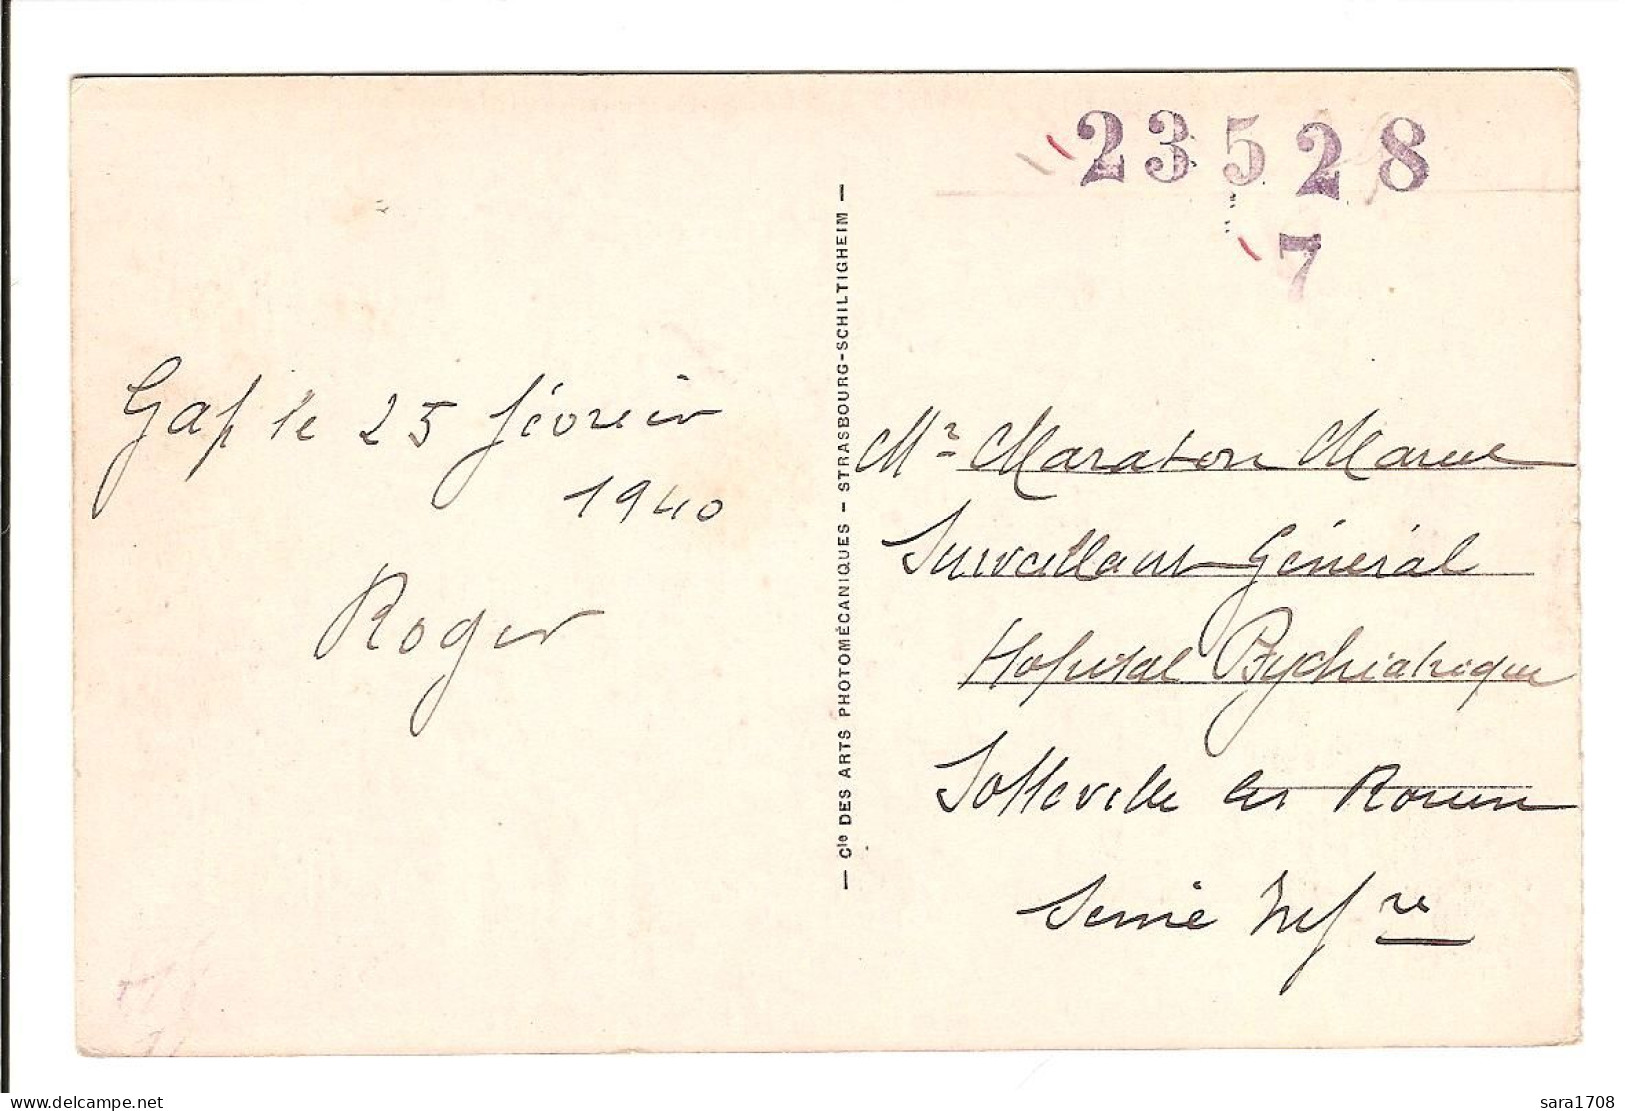 23528
7
Gap le 25 février
1940
Roger
— Cie DES ARTS PHOTOMÉCANIQUES – STRASBOURG-SCHILTIGHEIM —
Mr Maraton Marcel
Surveillant Général
Hopital Psychiatrique
Sotteville les Rouen
Seine Infre
www.delcampe.net
sara1708